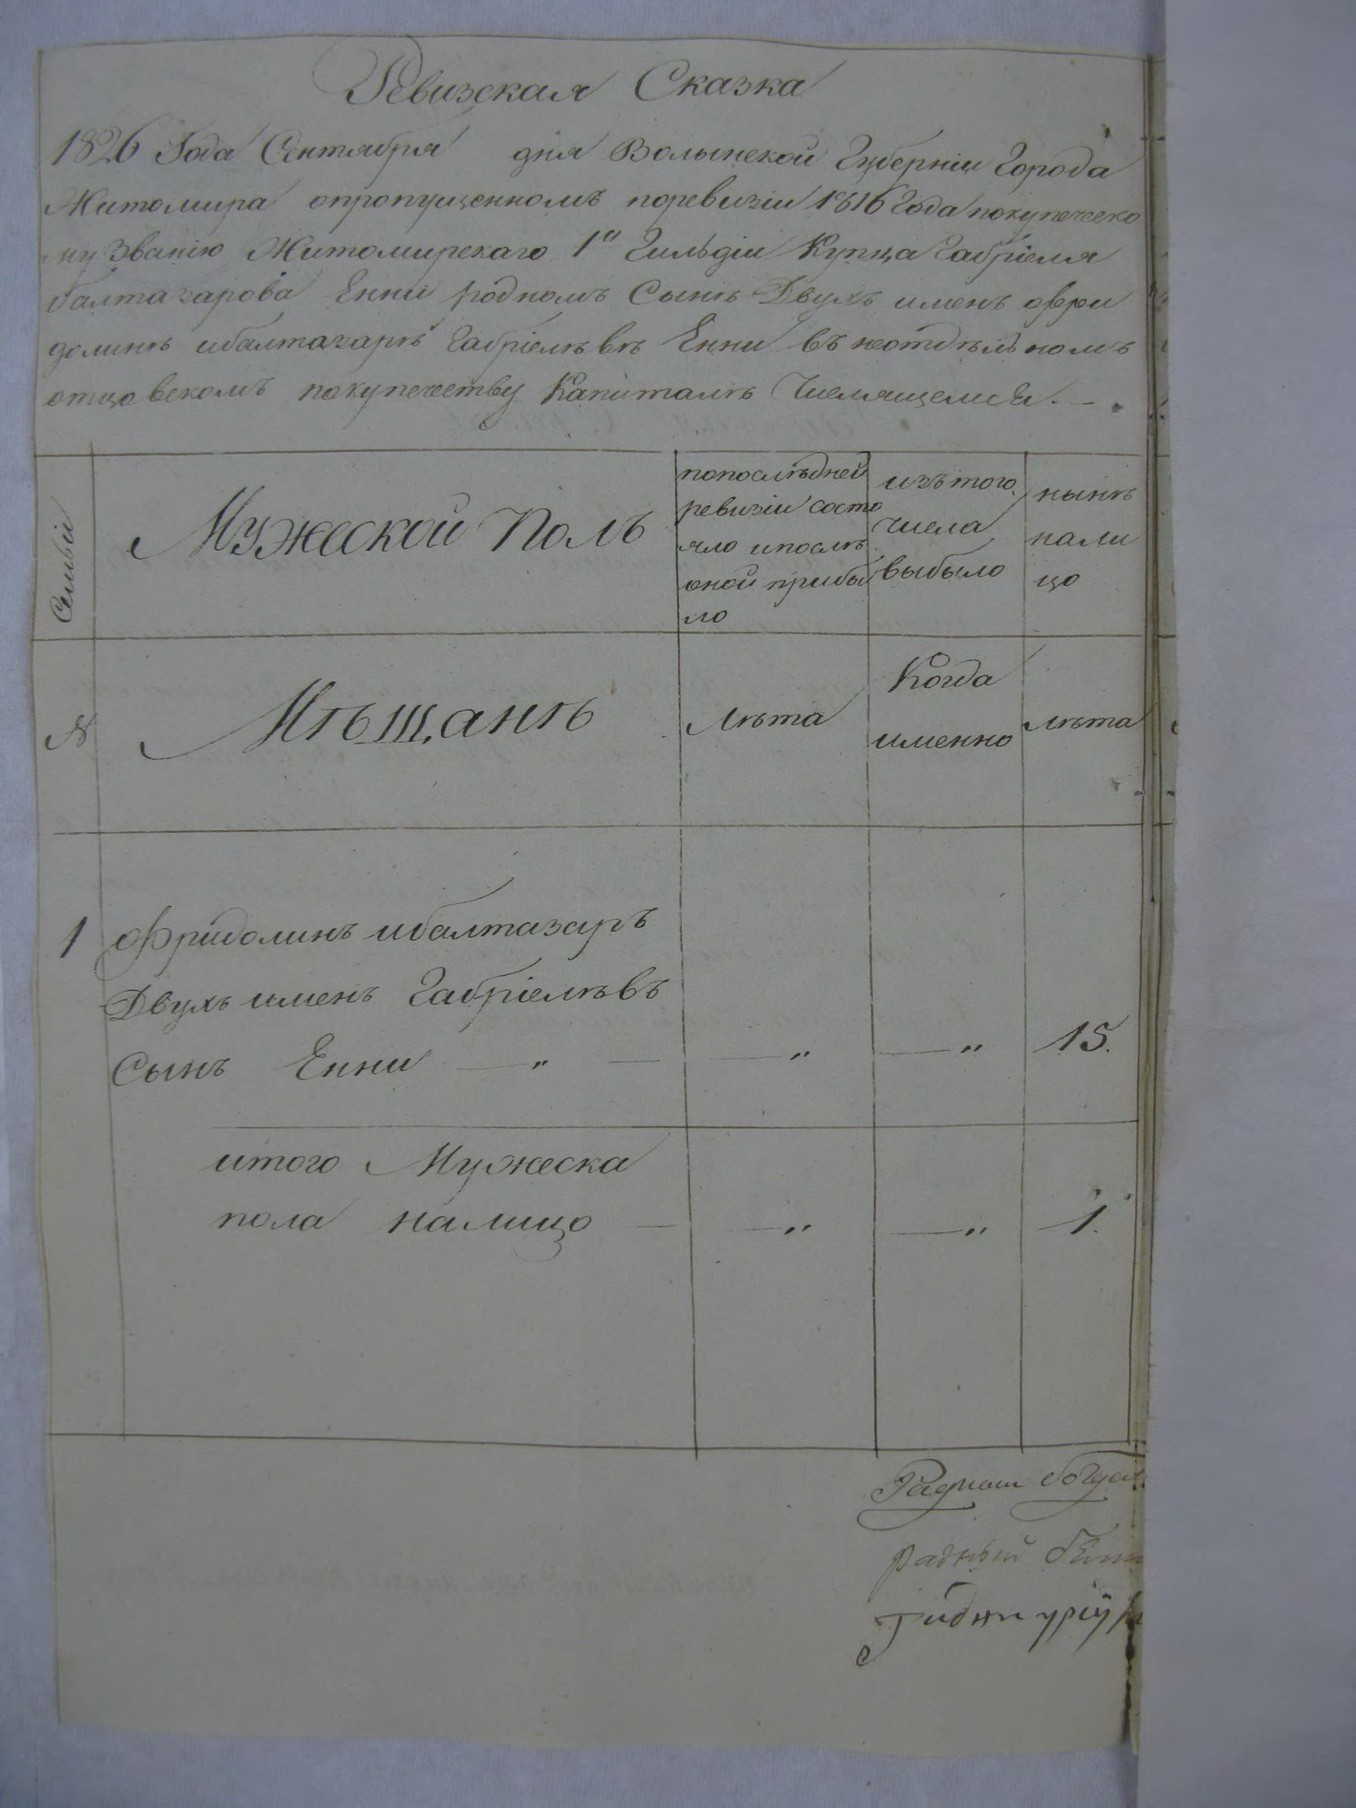 Ревизская Сказка
1826 Года Сентября дня Волынской Губерніи Города
Житомира опропущенномъ поревизіи 1816 Года покупеческо
му Званію Житомирскаго 1й Гильдіи Купца Габріеля
балтазарова Енни родномъ Сынѣ Двухъ именъ офри
долинѣ ибалтазарѣ Габріелѣвѣ Енни въ неотдѣльномъ
отцовскомъ покупечеству Капиталѣ Числящемся. —
Семьи
Мужеской Полъ
попослѣдней
ревизіи состо
яло ипослѣ
оной прибы
ло
изътого
числа
выбыло
нынѣ
нали
цо
№
Мѣщанѣ
лѣта
Когда
именно
лѣта
1 Фридолинъ ибалтазаръ
Двухъ именъ Габріелѣвъ
Сынъ Енни — „ — — „ — „ 15.
итого Мужеска
пола налицо — — „ — „ 1.
радный